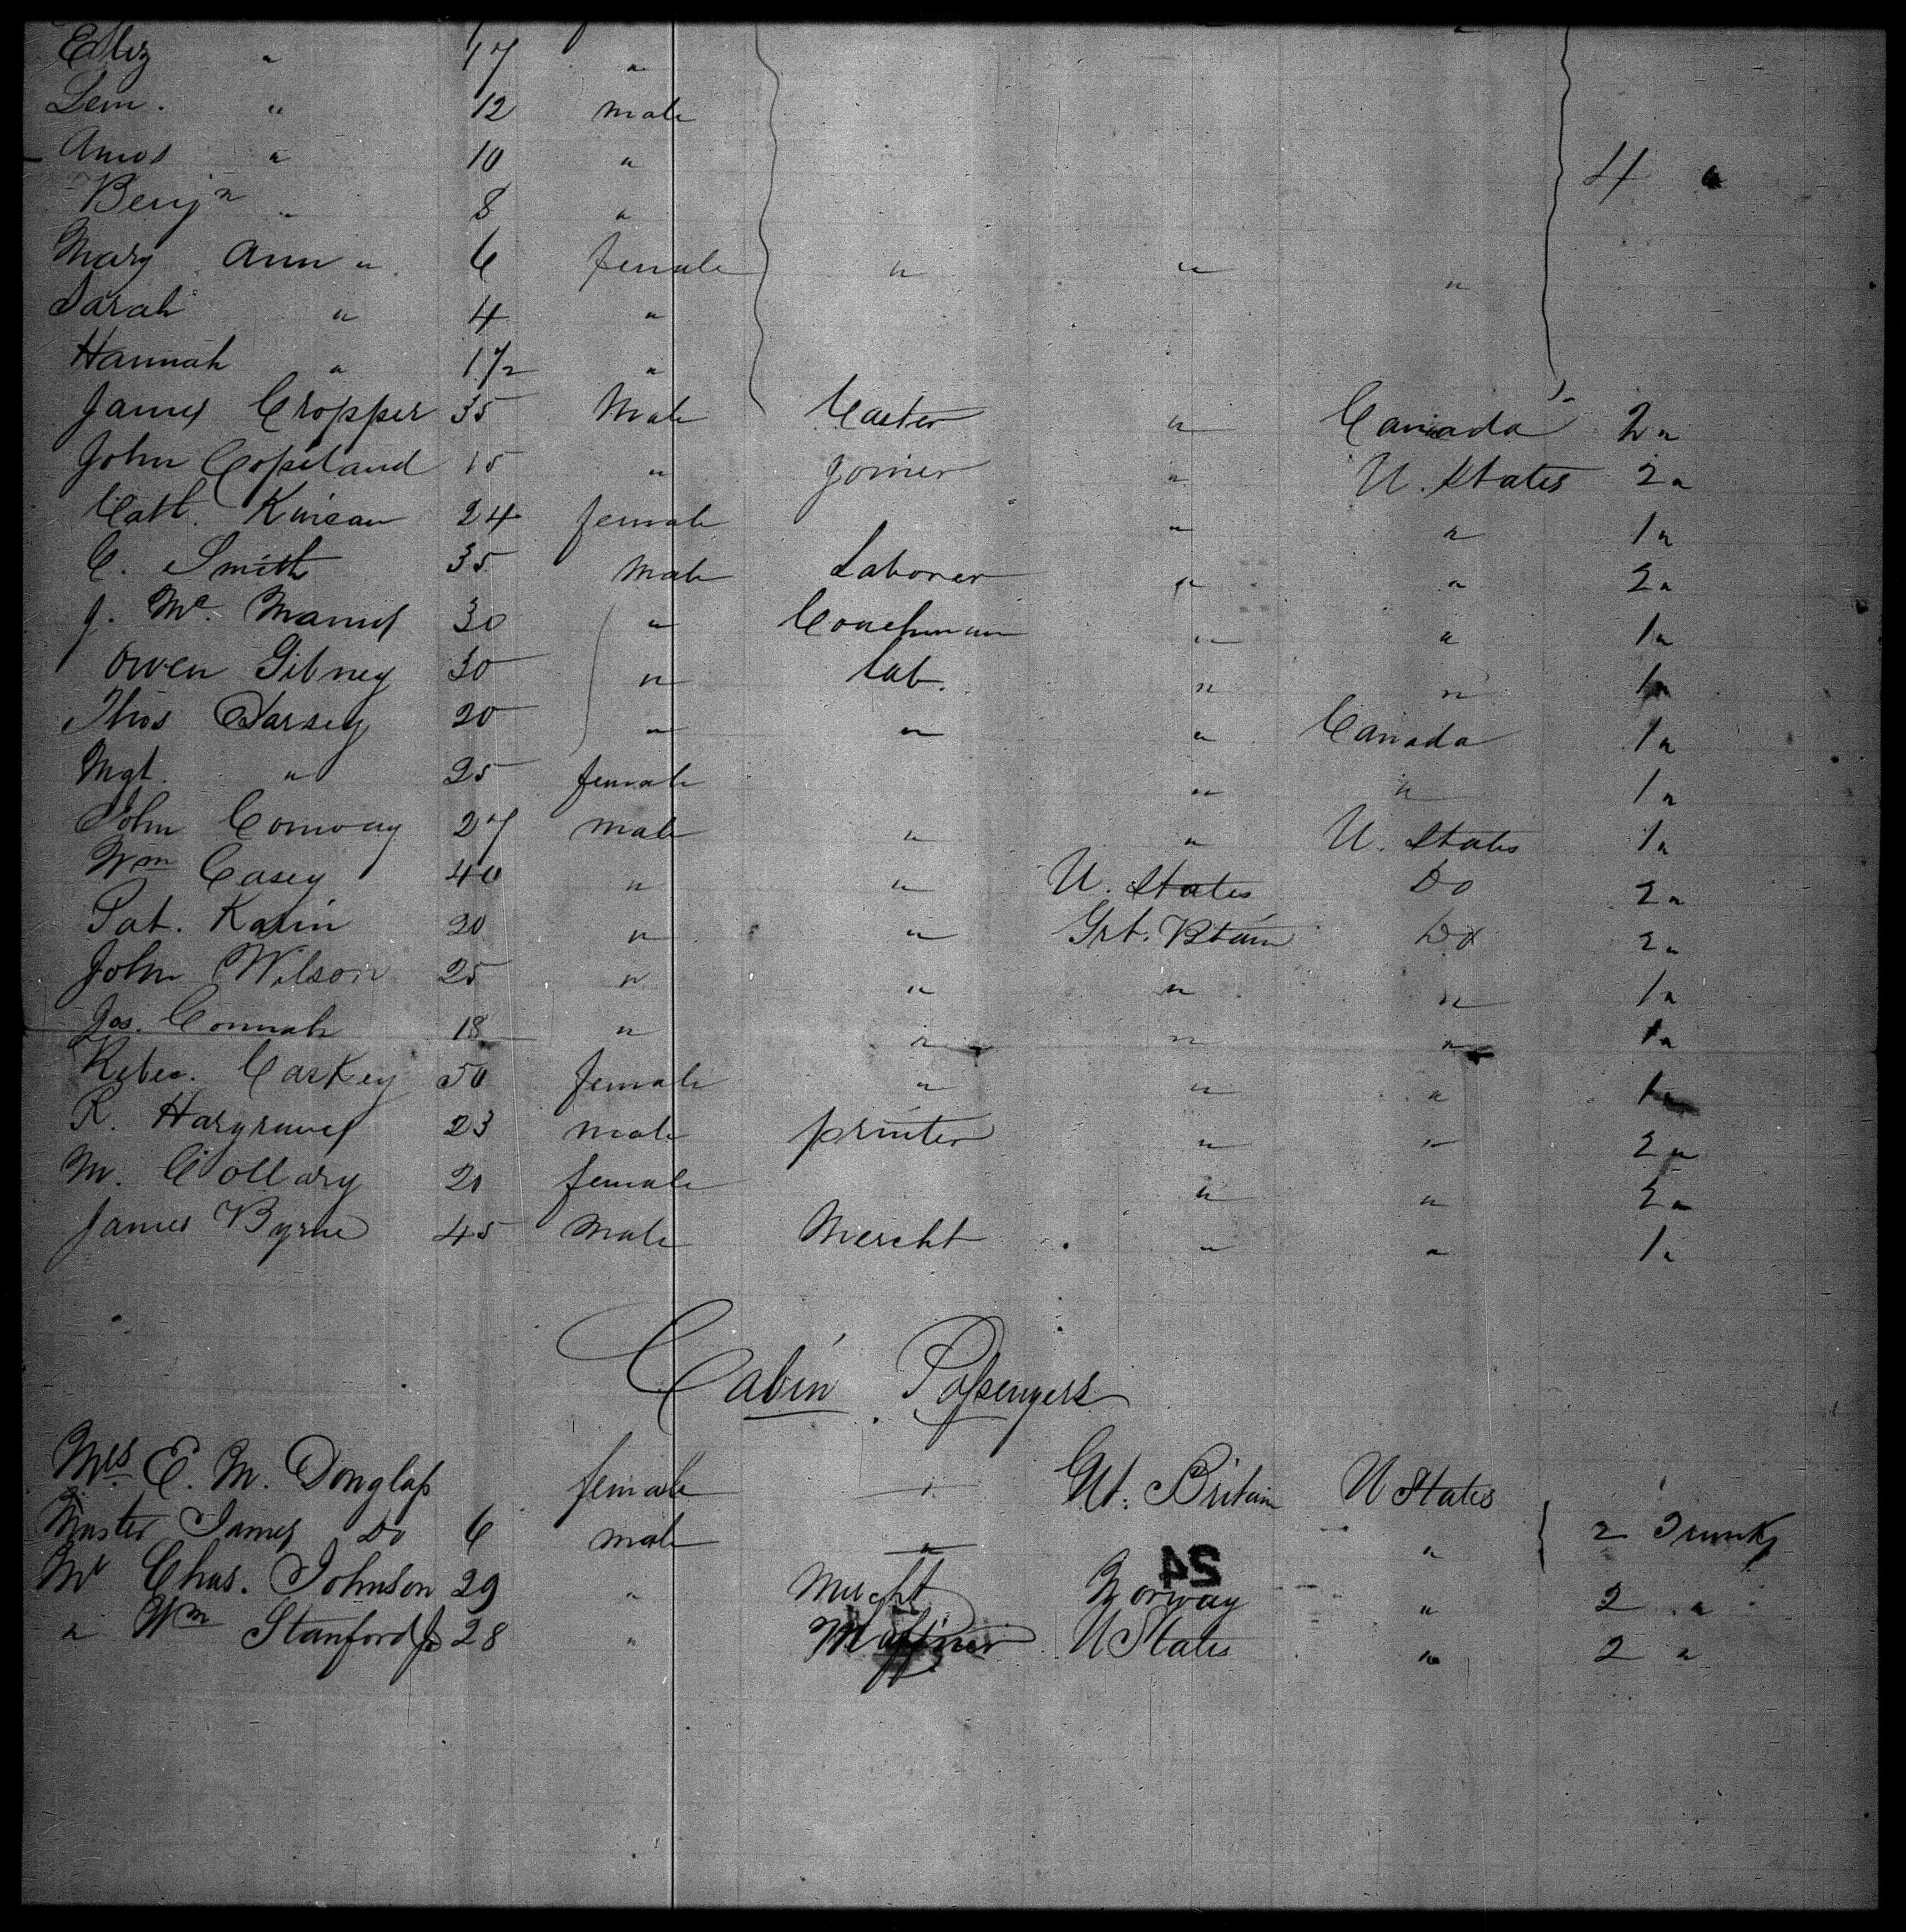 Eliz " 17 "
Lem. " 12 male
Amos " 10 " 4 "
Benjn " 8 "
Mary Ann " 6 female " " "
Sarah " 4 "
Hannah " 1 1/2 "
James Cropper 35 Male Carter " Canada 2 "
John Copeland 15 " Joiner " U. States 2 "
Cath. 24 female " " 1 "
C. Smith 35 Male Laborer " " 2 "
J. Mc. Manus 30 " Coachman " " 1 "
Owen Gibney 30 " Lab. " " 1 "
Thos Darsey 20 " " " Canada 1 "
Mgt. " 25 female " " 1 "
John Conway 27 male " " U. States 1 "
Wm Casey 40 " " U. States Do 2 "
Pat. 20 " " Grt. Btain Do 2 "
John Wilson 25 " " " " 1 "
Jos. Connah 18 " " " " 1 "
Rebec. Caskey 50 female " " " 1 "
R. Hargraves 23 male printer " " 2 "
M. Collary 20 female " " 2 "
James Byrne 45 Male Mercht " " 1 "
Cabin Passengers
Mrs E. M. Douglass female " Gt. Britain U States
Master James Do 6 male " " 2 Trunks
24
Mr Chas. Johnson 29 " Mercht Norway " 2 "
" Wm Stanford Jr 28 " U States " 2 "